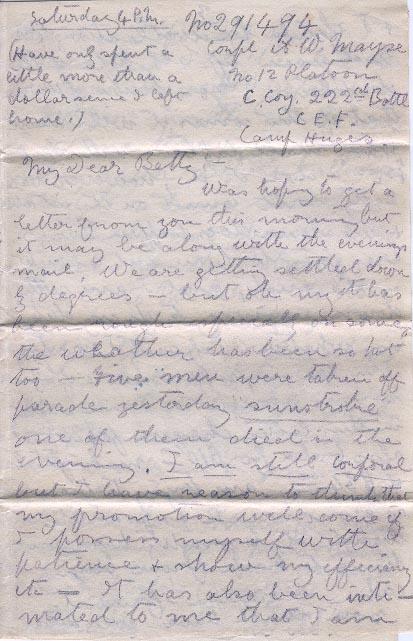 Saturday 4 P.M.
(Have only spent a
little more than a
dollar since I left
home.)
No 291494
Corpl A W. Mayse
No 12 Platoon
C. Coy. 222nd Battl
C. E. F.
Camp Huges
My Dear Betty :-
Was hoping to get a
letter from you this morning but
it may be along with the evenings
mail. We are getting settled down
by degrees - but oh my it has
been rough on some,
the whather has been so hot
too - Five men were taken off
parade yesterday sunstroke
one of them died in the
evening. I am still corporal
but I have reason to think that
my promotion will come if
I possess myself with
patience & show my efficiency
etc - It has also been inti-
mated to me that I am